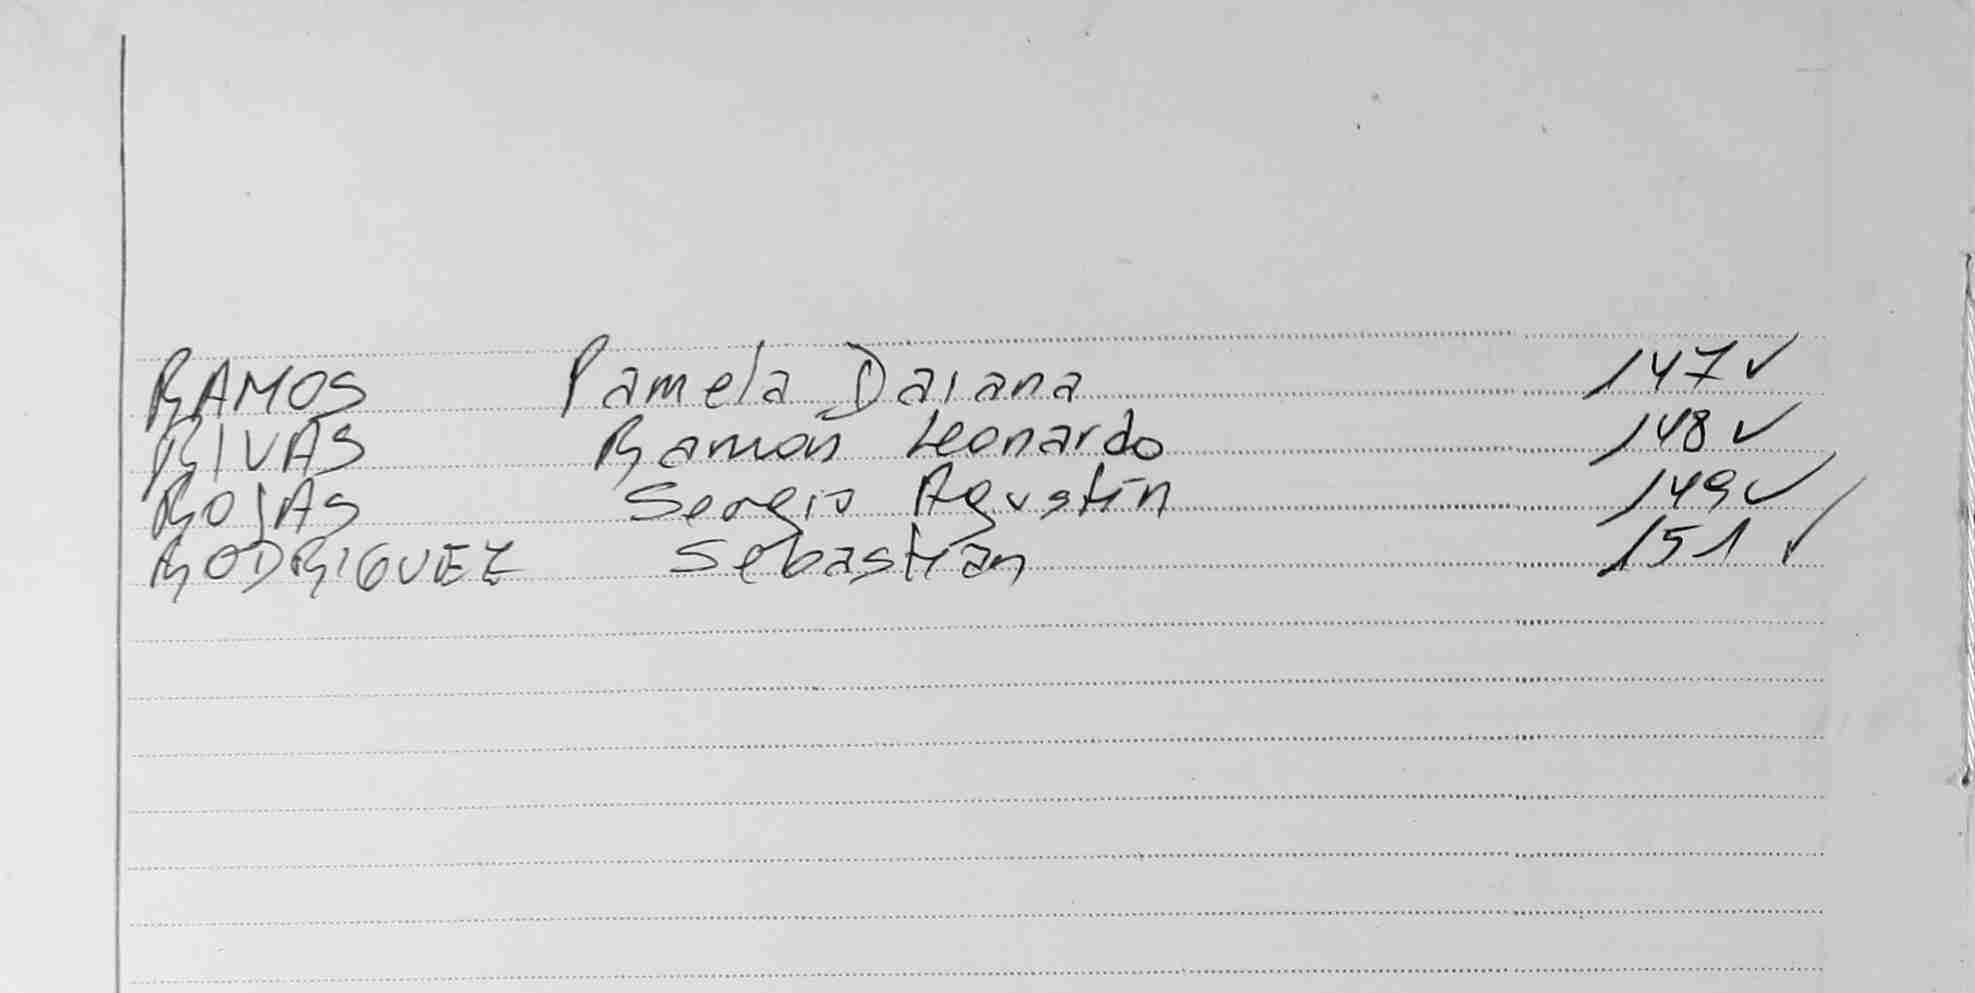 RAMOS Pamela Daiana 147 ✓
RIVAS Ramón Leonardo 148 ✓
ROJAS Sergio Agustín 149 ✓
RODRIGUEZ Sebastián 151 ✓